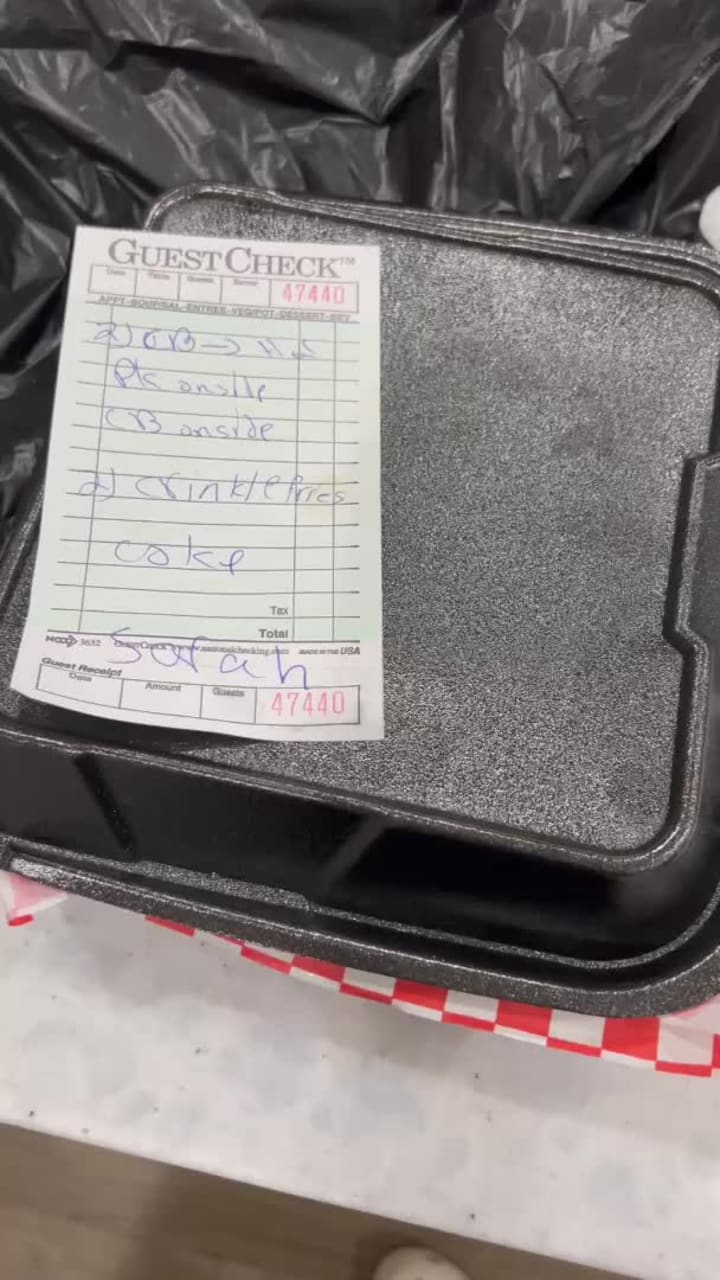 GUEST CHECK™
Date Table Guests Server 47440
APPT-SOUP/SAL-ENTREE-VEG/POT-DESSERT-BEV
2) CB →
Pk onside
CB onside
2) crinkle fries
coke
Tax
Total
3632 GuestCheck™ www.nationalchecking.com MADE IN THE USA
Sarah
Guest Receipt
Date Amount Guests 47440